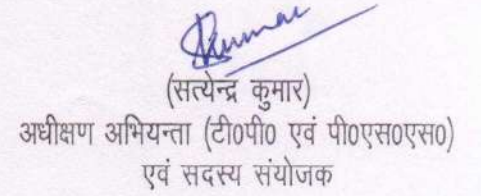 (सत्येन्द्र कुमार)
अधीक्षण अभियन्ता (टी0पी0 एवं पी0एस0एस0)
एवं सदस्य संयोजक